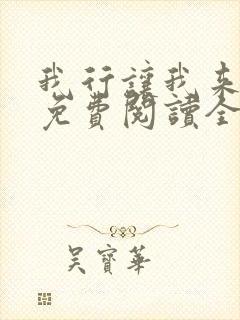 我行讓我來
免費閱讀全
吳寶華